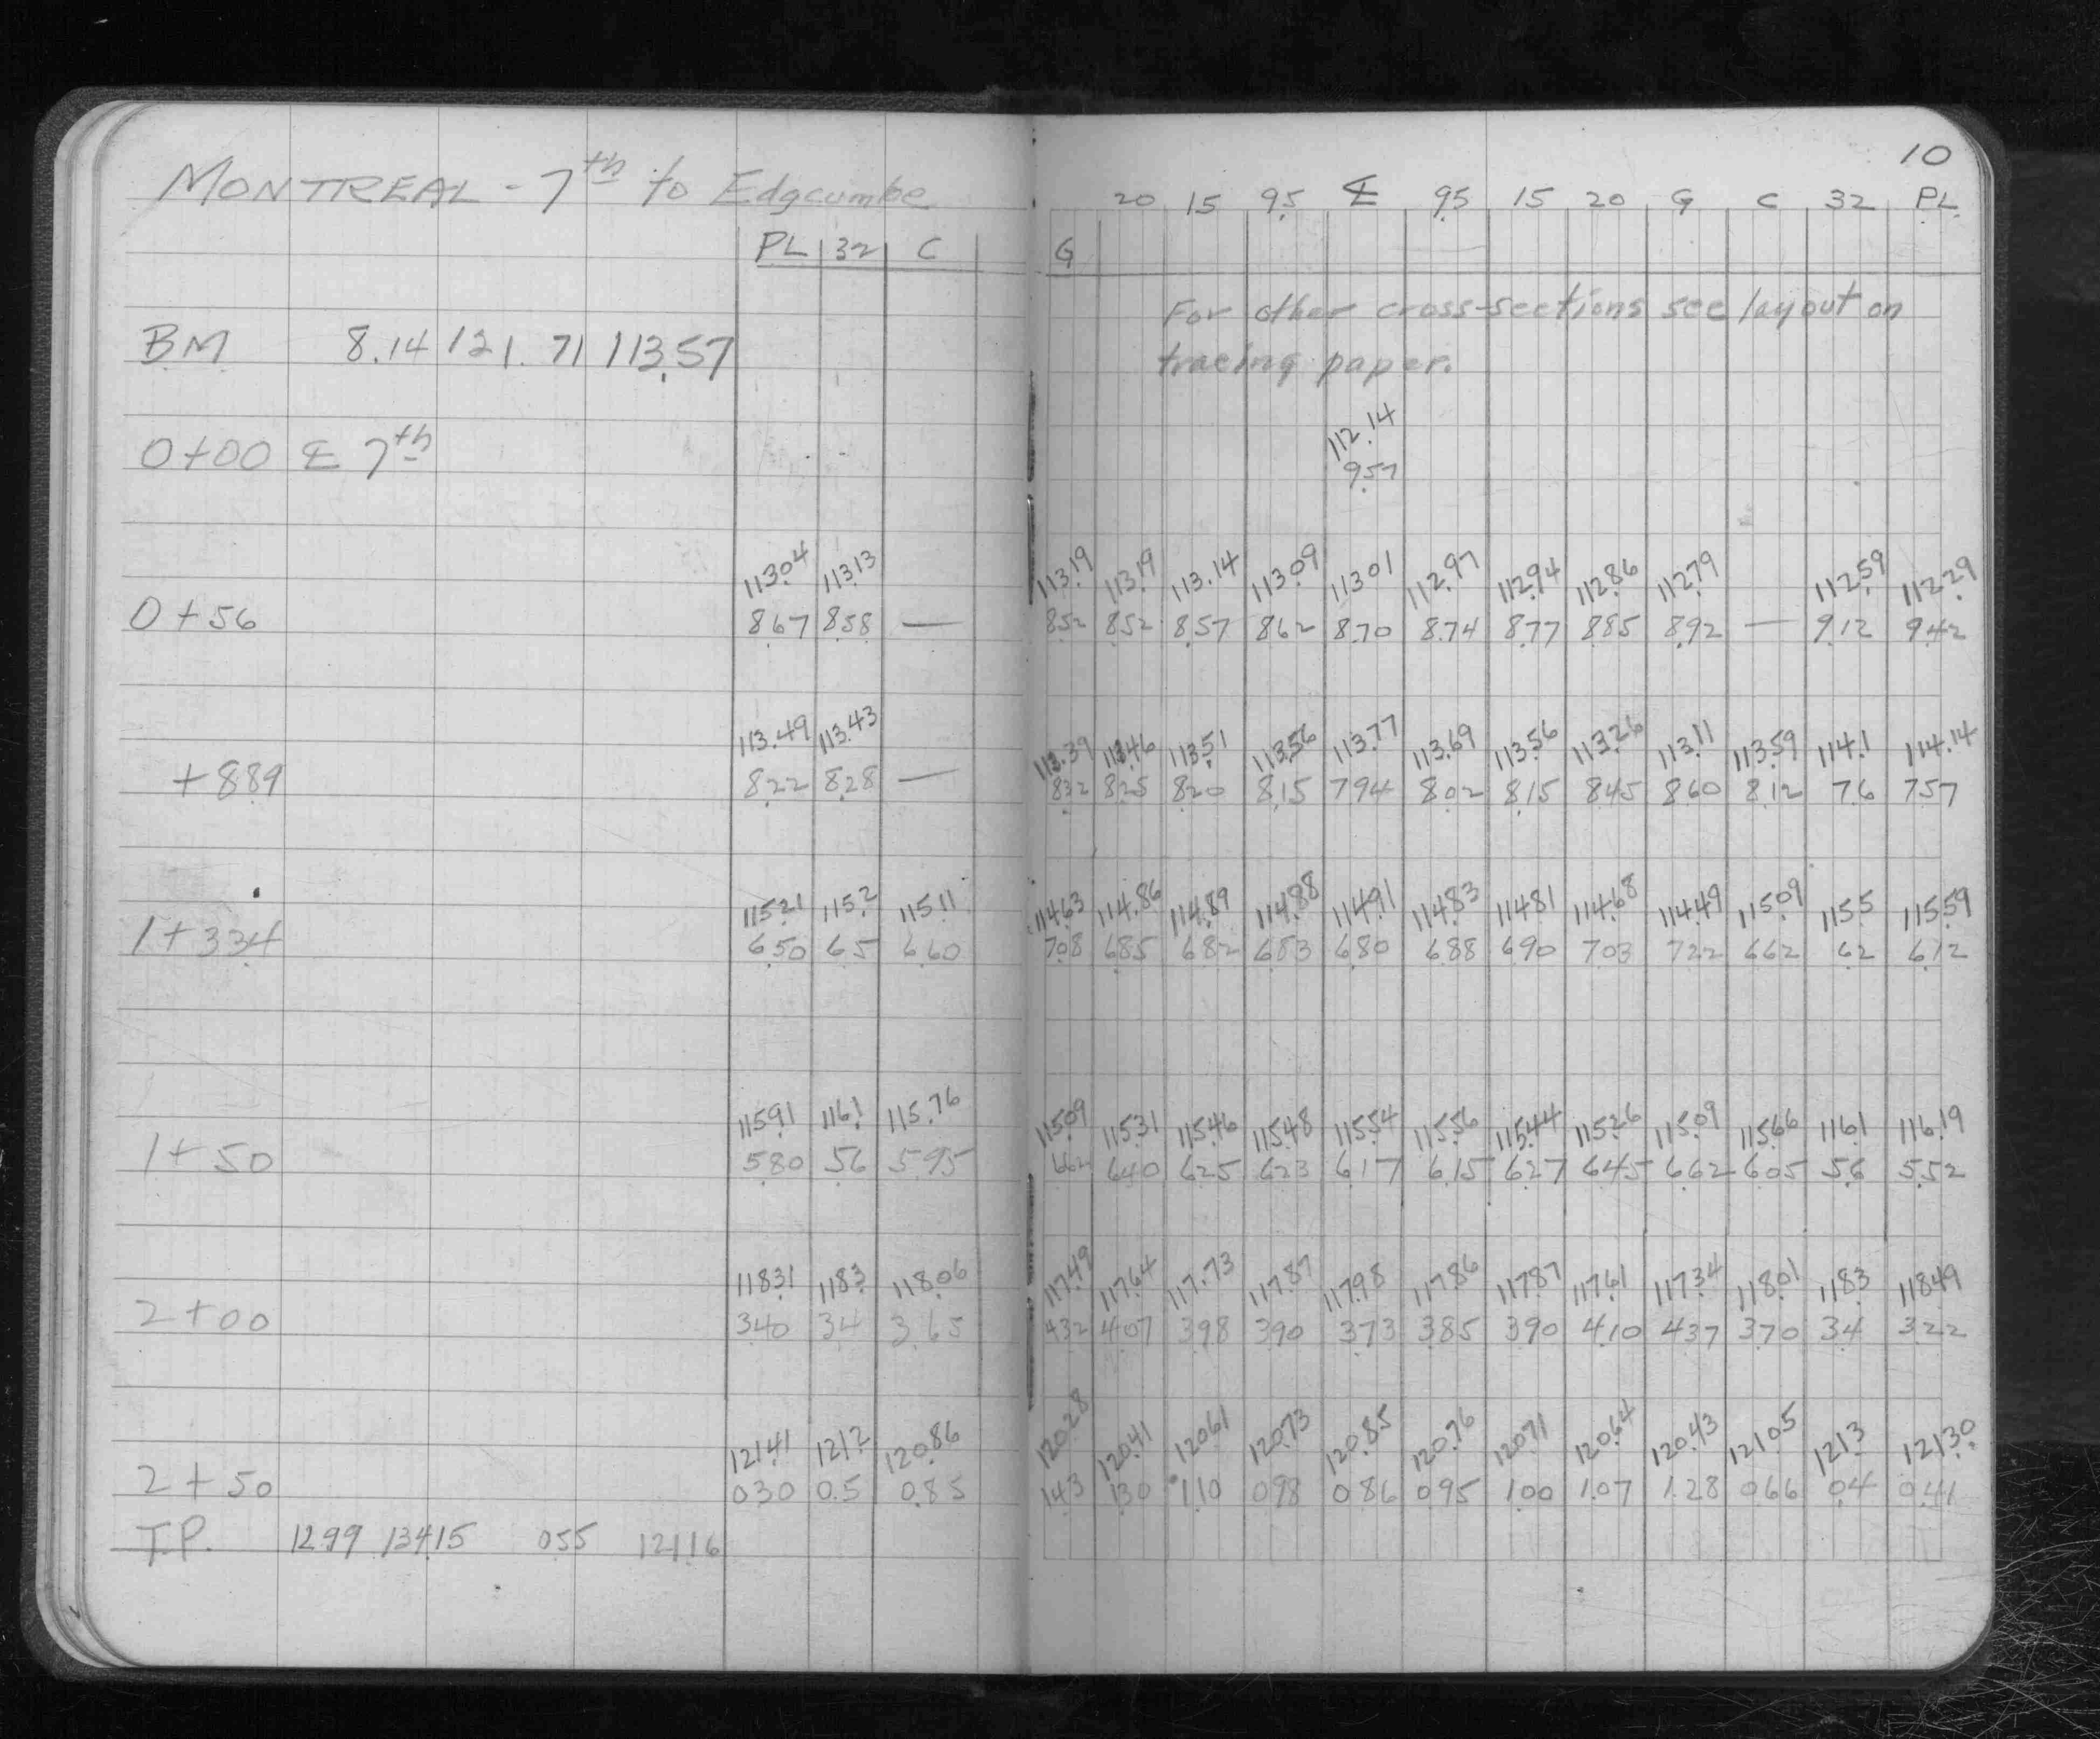 10
MONTREAL - 7th to Edgcumbe
20 15 9.5 ℄ 9.5 15 20 G C 32 PL
PL 32 C G
For other cross-sections see layout on
BM 8.14 121.71 113.57
tracing paper.
112.14
0+00 ℄ 7th
9.57
113.04 113.13 113.19 113.19 113.14 113.09 113.01 112.97 112.94 112.86 112.79 112.59 112.29
0+56 8.67 8.58 — 8.52 8.52 8.57 8.62 8.70 8.74 8.77 8.85 8.92 — 9.12 9.42
113.49 113.43 113.39 113.46 113.51 113.56 113.77 113.69 113.56 113.26 113.11 113.59 114.1 114.14
+88.9 8.22 8.28 — 8.32 8.25 8.20 8.15 7.94 8.02 8.15 8.45 8.60 8.12 7.6 7.57
115.21 115.2 115.11 114.63 114.86 114.89 114.88 114.91 114.83 114.81 114.68 114.49 115.09 115.5 115.59
1+33.4 6.50 6.5 6.60 7.08 6.85 6.82 6.83 6.80 6.88 6.90 7.03 7.22 6.62 6.2 6.12
115.91 116.1 115.76 115.09 115.31 115.46 115.48 115.54 115.56 115.44 115.26 115.09 115.66 116.1 116.19
1+50 5.80 5.6 5.95 6.62 6.40 6.25 6.23 6.17 6.15 6.27 6.45 6.62 6.05 5.6 5.52
118.31 118.3 118.06 117.49 117.64 117.73 117.87 117.98 117.86 117.87 117.61 117.34 118.01 118.3 118.49
2+00 3.40 3.4 3.65 4.32 4.07 3.98 3.90 3.73 3.85 3.90 4.10 4.37 3.70 3.4 3.22
121.41 121.2 120.86 120.28 120.41 120.61 120.73 120.85 120.76 120.71 120.64 120.43 121.05 121.3 121.30
2+50 0.30 0.5 0.85 1.43 1.30 1.10 0.98 0.86 0.95 1.00 1.07 1.28 0.66 0.4 0.41
T.P. 12.99 134.15 0.55 121.16